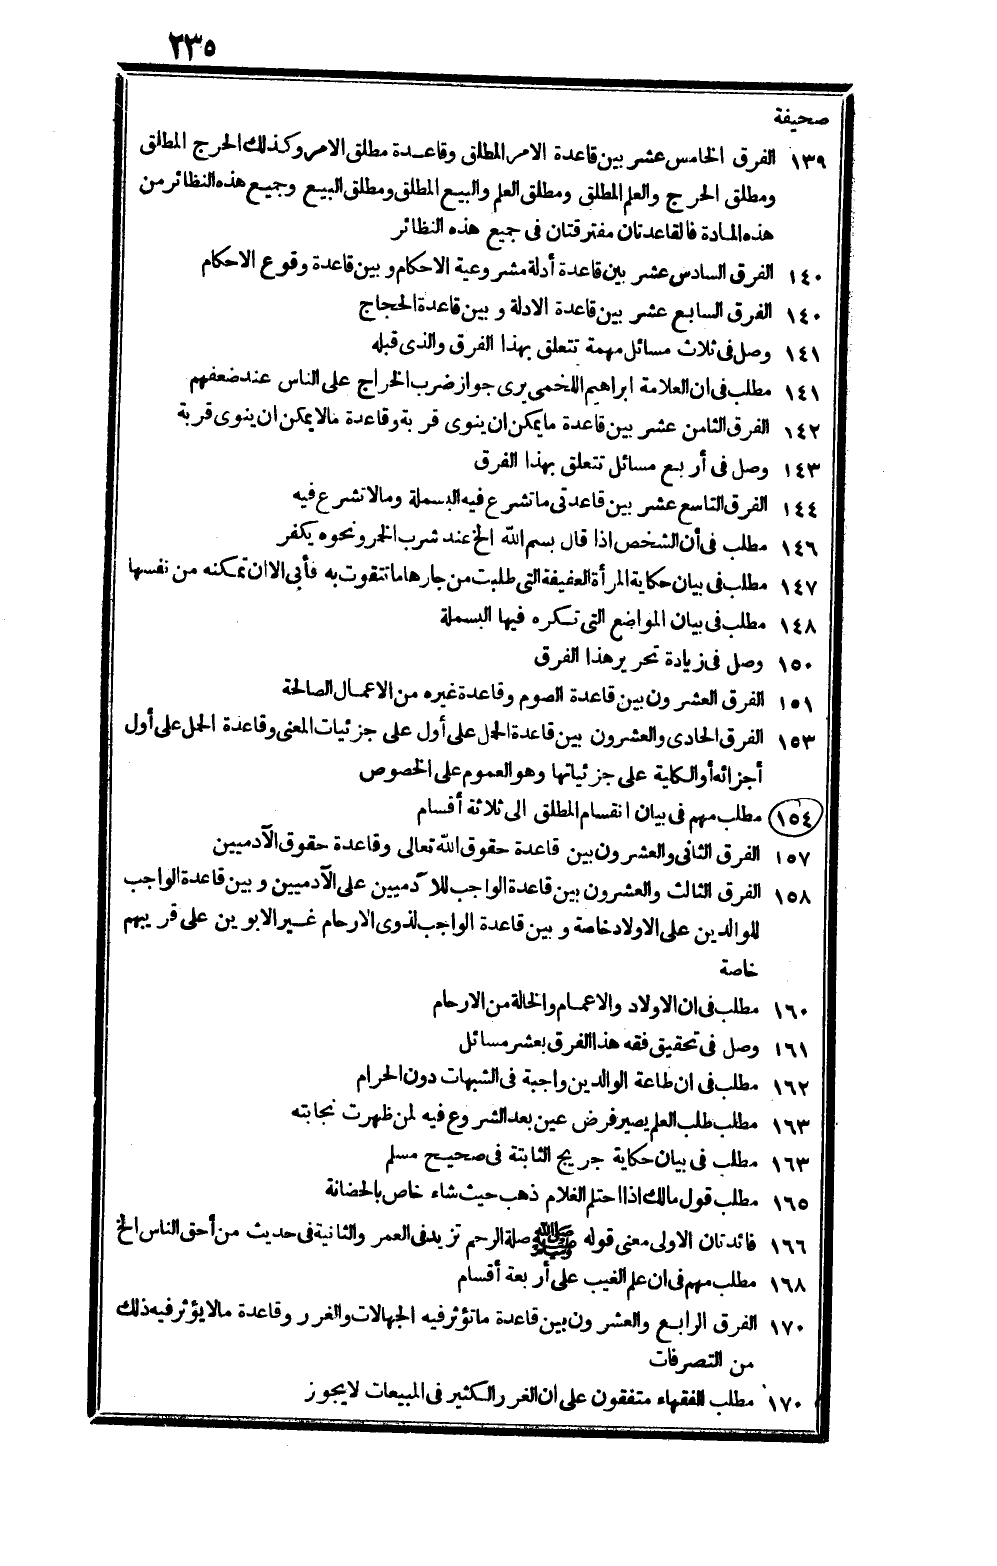 ٢٣٥
صحيفة
١٣٩ الفرق الخامس عشر بين قاعدة الامر المطلق وقاعدة مطلق الامر وكذلك الحرج المطلق
ومطلق الحرج والعلم المطلق ومطلق العلم والبيع المطلق ومطلق البيع وجميع هذه النظائر من
هذه المادة فالقاعدتان مفترقتان فى جميع هذه النظائر
١٤٠ الفرق السادس عشر بين قاعدة أدلة مشروعية الاحكام وبين قاعدة وقوع الاحكام
١٤٠ الفرق السابع عشر بين قاعدة الادلة وبين قاعدة الحجاج
١٤١ وصل فى ثلاث مسائل مهمة تتعلق بهذا الفرق والذى قبله
١٤١ مطلب فى ان العلامة ابراهيم اللخمى يرى جواز ضرب الخراج على الناس عند ضعفهم
١٤٢ الفرق الثامن عشر بين قاعدة مايمكن ان ينوى قربة وقاعدة مالا يمكن ان ينوى قربة
١٤٣ وصل فى أربع مسائل تتعلق بهذا الفرق
١٤٤ الفرق التاسع عشر بين قاعدتى ماتشرع فيه البسملة ومالا تشرع فيه
١٤٦ مطلب فى أن الشخص اذا قال بسم الله الخ عند شرب الخمر ونحوه يكفر
١٤٧ مطلب فى بيان حكاية المرأة العفيفة التى طلبت من جارها ما تتقوت به فأبى الا ان تمكنه من نفسها
١٤٨ مطلب فى بيان المواضع التى تكره فيها البسملة
١٥٠ وصل فى زيادة تحرير هذا الفرق
١٥١ الفرق العشرون بين قاعدة الصوم وقاعدة غيره من الاعمال الصالحة
١٥٣ الفرق الحادى والعشرون بين قاعدة الحمل على أول على جزئيات المعنى وقاعدة الحمل على أول
أجزائه أو الكلية على جزئياتها وهو العموم على الخصوص
١٥٤ مطلب مهم فى بيان انقسام المطلق الى ثلاثة أقسام
١٥٧ الفرق الثانى والعشرون بين قاعدة حقوق الله تعالى وقاعدة حقوق الآدميين
١٥٨ الفرق الثالث والعشرون بين قاعدة الواجب للآدميين على الآدميين وبين قاعدة الواجب
للوالدين على الاولاد خاصة وبين قاعدة الواجب لذوى الارحام غير الابوين على قريبهم
خاصة
١٦٠ مطلب فى ان الاولاد والاعمام والخالة من الارحام
١٦١ وصل فى تحقيق فقه هذا الفرق بعشر مسائل
١٦٢ مطلب فى ان طاعة الوالدين واجبة فى الشبهات دون الحرام
١٦٣ مطلب طلب العلم يصير فرض عين بعد الشروع فيه لمن ظهرت نجابته
١٦٣ مطلب فى بيان حكاية جريج الثابتة فى صحيح مسلم
١٦٥ مطلب قول مالك اذا احتلم الغلام ذهب حيث شاء خاص بالحضانة
١٦٦ فائدتان الاولى معنى قوله ﷺ صلة الرحم تزيد فى العمر والثانية فى حديث من أحق الناس الخ
١٦٨ مطلب مهم فى ان علم الغيب على أربعة أقسام
١٧٠ الفرق الرابع والعشرون بين قاعدة ماتؤثر فيه الجهالات والغرر وقاعدة مالا يؤثر فيه ذلك
من التصرفات
١٧٠ مطلب الفقهاء متفقون على ان الغرر الكثير فى المبيعات لا يجوز